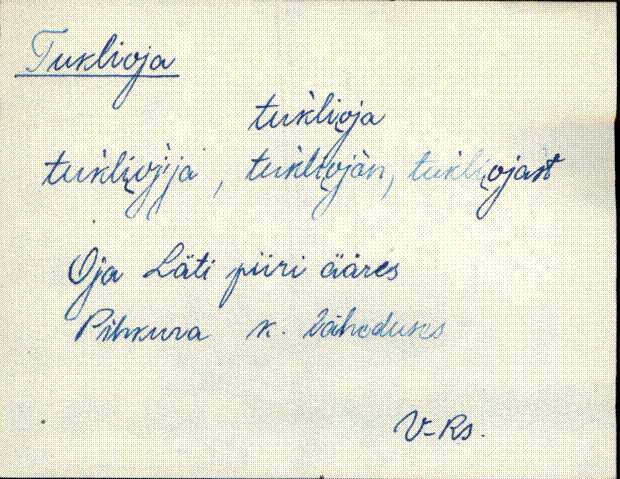 Tuklioja
tùkli̮oja
tùkli̮ojja, tùkli̮ojàn, tukli̮ojast
Oja Läti piiri ääres
Pihkura k. läheduses
V-Rs.